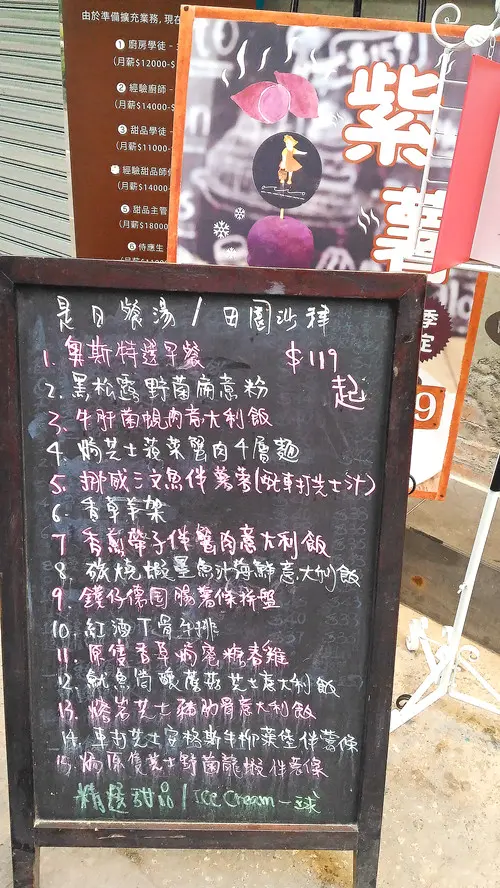 由於準備擴充業務, 現在
❶ 廚房學徒 -
(月薪$12000-$
❷ 經驗廚師 -
(月薪$14000-
❸ 甜品學徒 -
(月薪$11000-
❹ 經驗甜品師
(月薪$14000-
❺ 甜品主管
(月薪$18000
❻ 侍應生
(月薪$11000
$159
紫薯
季
定
9
是日餐湯 / 田園沙律
1. 奧斯特選早餐 $119
起
2. 黑松露野菌扁意粉
3. 牛肝菌蜆肉意大利飯
4. 焗芝士菠菜蟹肉千層麵
5. 挪威三文魚伴薯蓉(配車打芝士汁)
6. 香草羊架
7 香煎帶子伴蟹肉意大利飯
8. 燒蝦墨魚汁海鮮意大利飯
9. 德国腸薯條拼盤
10. 紅酒丁骨牛排
11. 原隻香草焗蜜糖春雞
12. 魷魚筒釀蘑菇芝士意大利飯
13. 芝士豬肋骨意大利飯
14. 車打芝士安格斯牛柳漢堡伴薯條
15. 焗原隻芝士野菌龍蝦伴薯條
精選甜品 / Ice Cream 一球